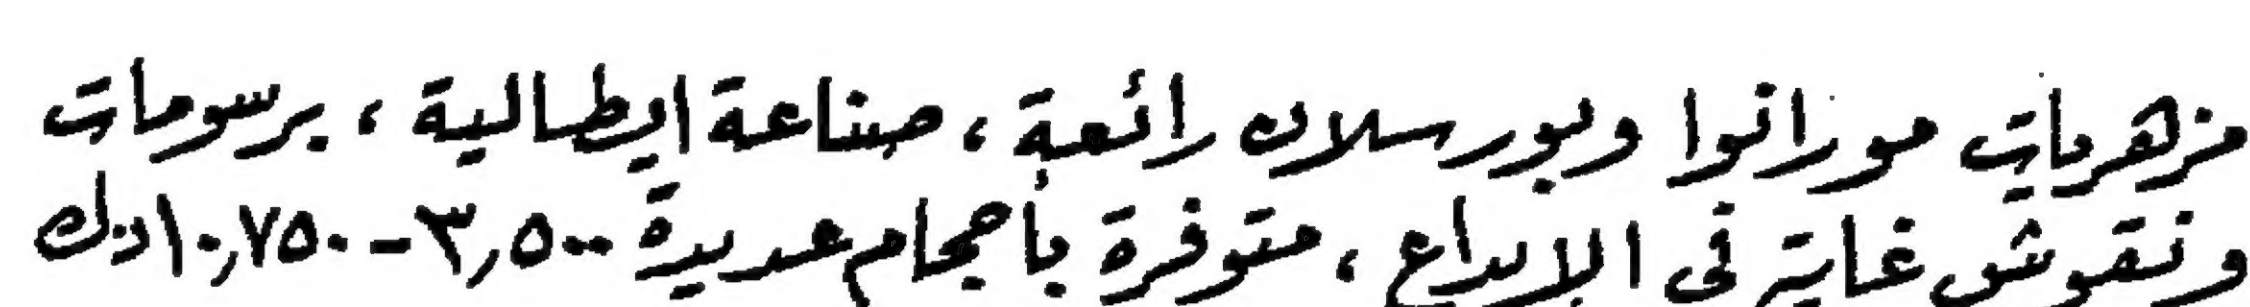 مزهريات مورانوا وبورسلان رائعة، صناعة ايطالية، برسومات
ونقوش غاية في الابداع، متوفرة بأحجام عديدة ٣,٥٠٠-١٠,٧٥٠ د.ك